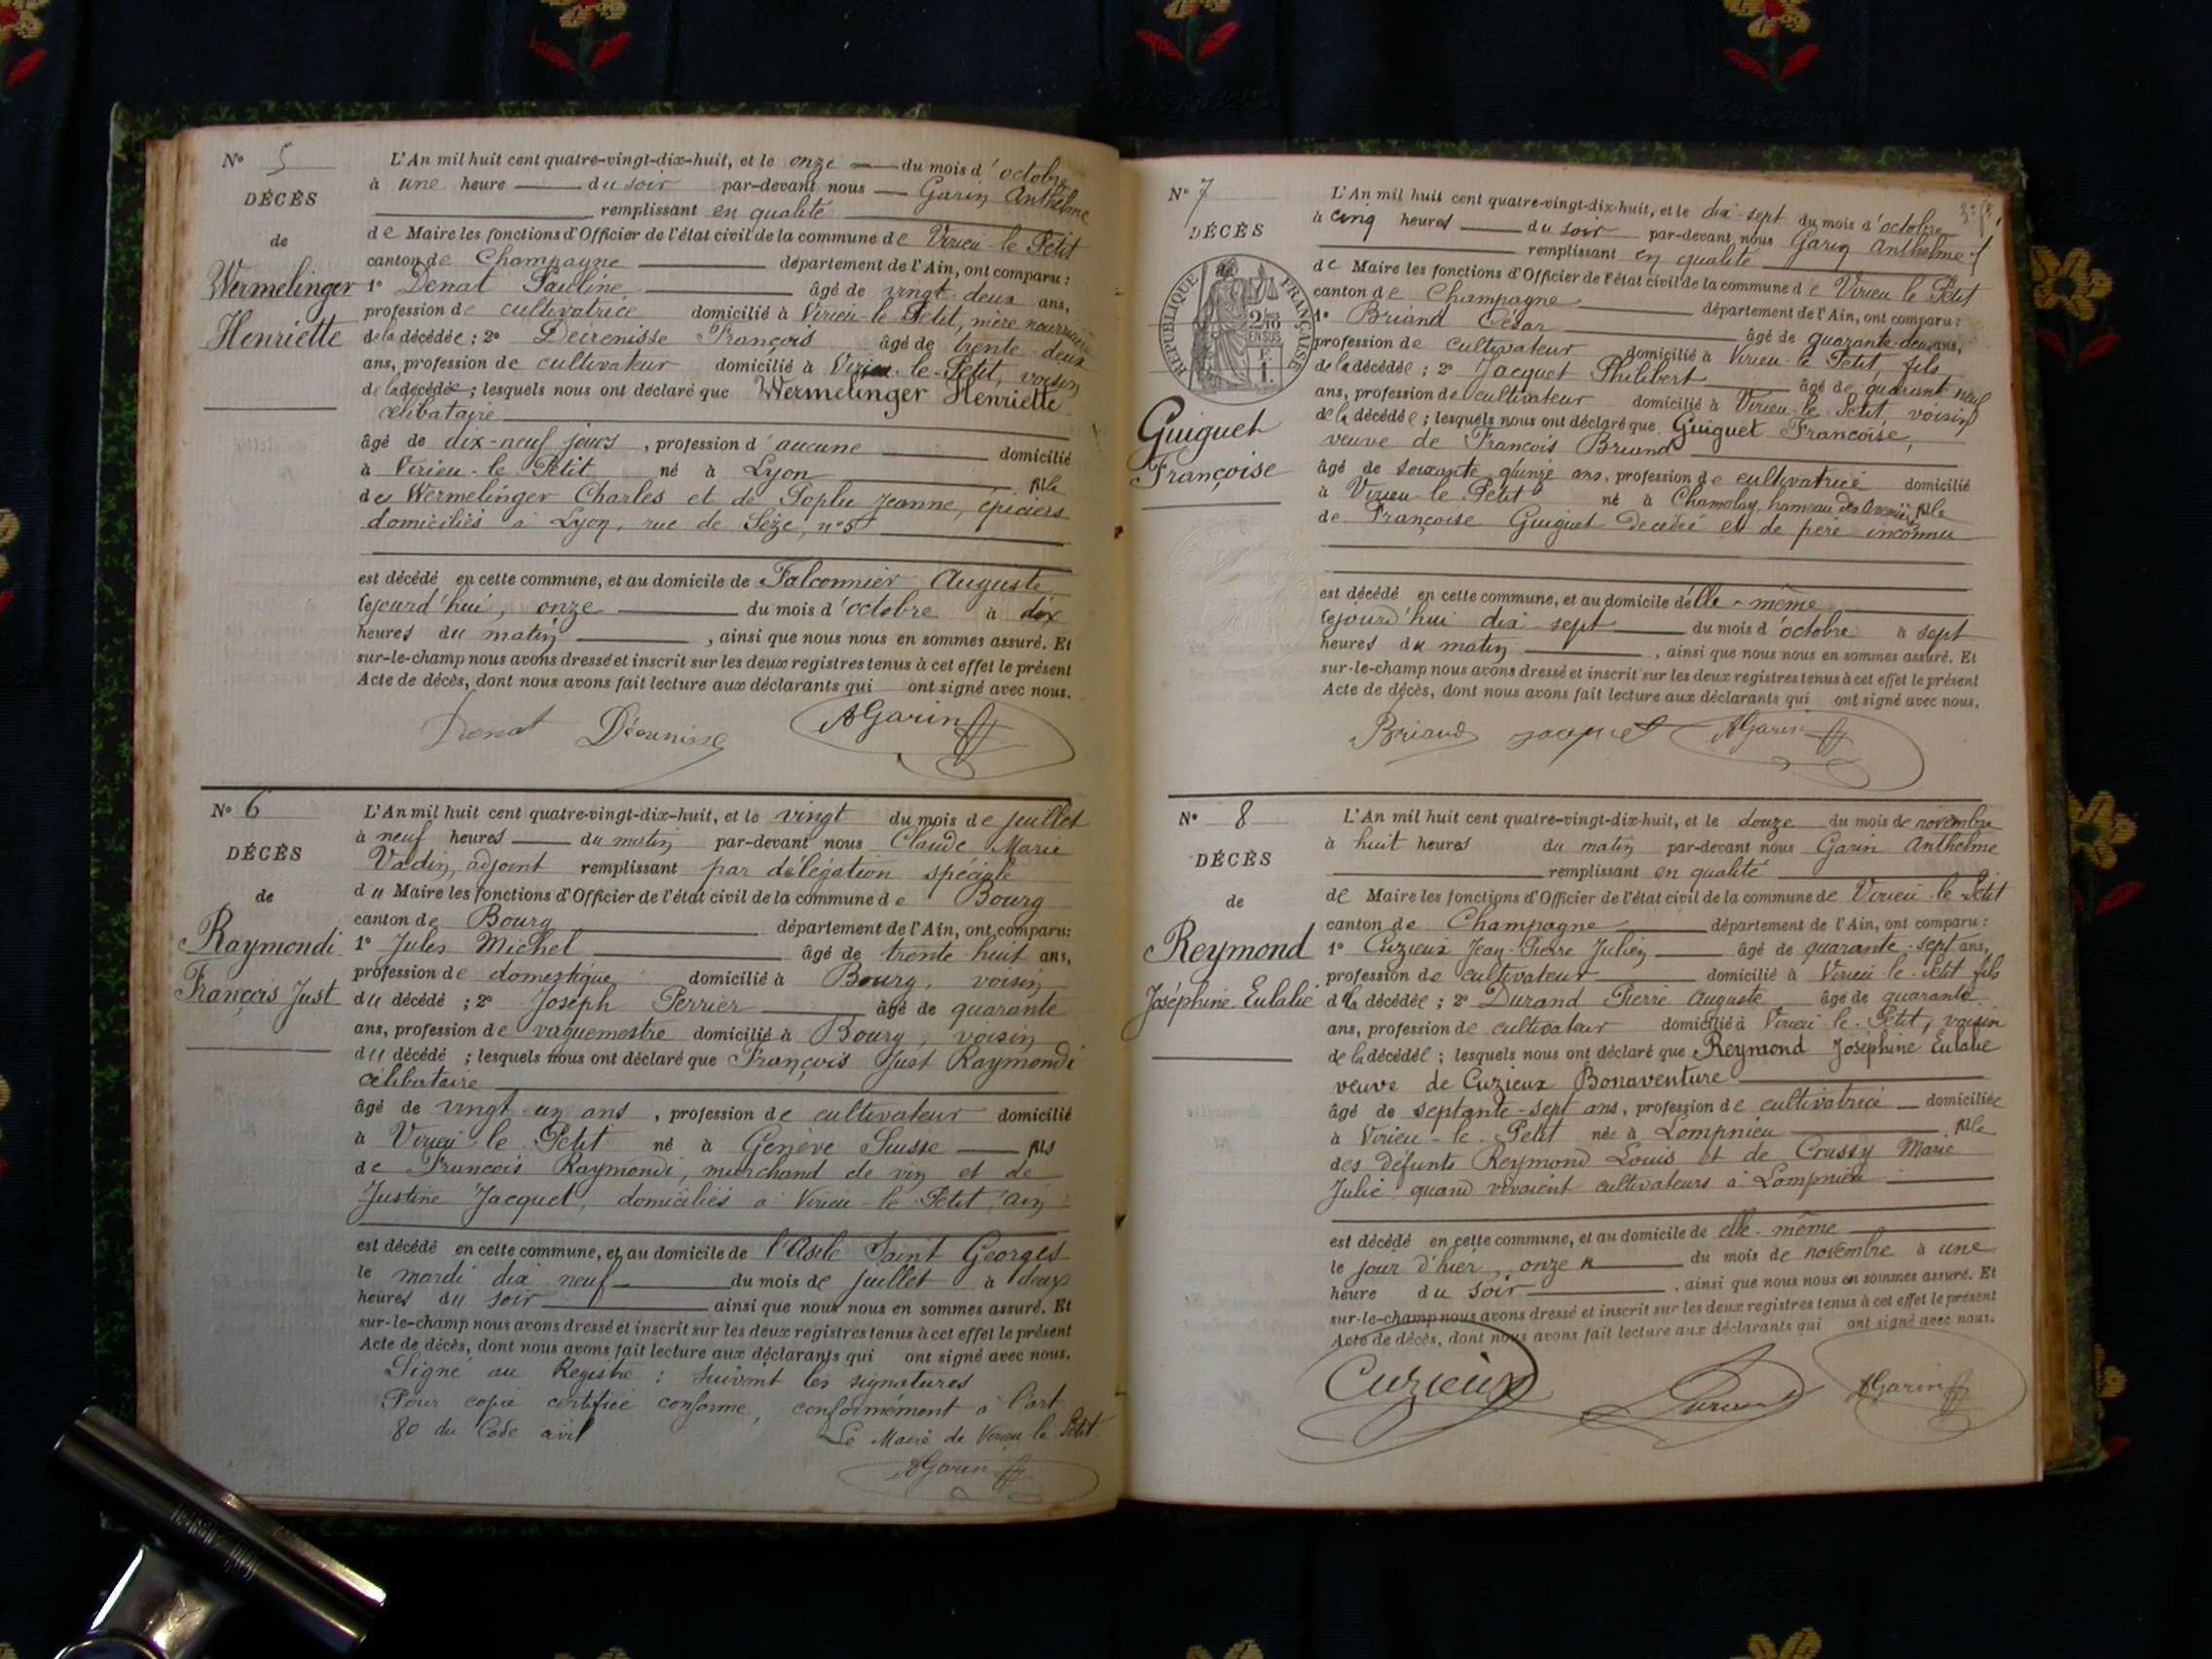 N° 5
DÉCÈS
de
Wermelinger
Henriette
L'An mil huit cent quatre-vingt-dix-huit, et le onze du mois d'octobre
à une heure du soir par-devant nous Garin Anthelme
remplissant en qualité
de Maire les fonctions d'Officier de l'état civil de la commune de Virieu-le-Petit
canton de Champagne département de l'Ain, ont comparu :
1° Denat Pauline âgé de vingt-deux ans,
profession de cultivatrice domicilié à Virieu-le-Petit, mère nourricière
de la décédée ; 2° François âgé de trente-deux
ans, profession de cultivateur domicilié à Virieu-le-Petit, voisin
de la décédée ; lesquels nous ont déclaré que Wermelinger Henriette
célibataire
âgé de dix-neuf jours, profession d'aucune domicilié
à Virieu-le-Petit né à Lyon fille
de Wermelinger Charles et de Poplu Jeanne, épiciers
domiciliés à Lyon, rue de Sèze, n°5
est décédé en cette commune, et au domicile de Falconnier Auguste
cejourd'hui, onze du mois d'octobre à dix
heures du matin, ainsi que nous nous en sommes assuré. Et
sur-le-champ nous avons dressé et inscrit sur les deux registres tenus à cet effet le présent
Acte de décès, dont nous avons fait lecture aux déclarants qui ont signé avec nous.
Denat AGarin
N° 6
DÉCÈS
de
Raymondi
François Just
L'An mil huit cent quatre-vingt-dix-huit, et le vingt du mois de juillet
à neuf heures du matin par-devant nous Claude Marie
Vadin, adjoint remplissant par délégation spéciale
du Maire les fonctions d'Officier de l'état civil de la commune de Bourg
canton de Bourg département de l'Ain, ont comparu:
1° Jules Michel âgé de trente huit ans,
profession de domestique domicilié à Bourg, voisin
du décédé ; 2° Joseph Perrier âgé de quarante
ans, profession de vaguemestre domicilié à Bourg, voisin
du décédé ; lesquels nous ont déclaré que François Just Raymondi
célibataire
âgé de vingt-un ans, profession de cultivateur domicilié
à Virieu le Petit né à Genève Suisse fils
de François Raymondi, marchand de vin et de
Justine Jacquet, domiciliés à Virieu-le-Petit, Ain
est décédé en cette commune, et au domicile de l'Asile Saint Georges
le mardi dix neuf du mois de juillet à deux
heures du soir ainsi que nous nous en sommes assuré. Et
sur-le-champ nous avons dressé et inscrit sur les deux registres tenus à cet effet le présent
Acte de décès, dont nous avons fait lecture aux déclarants qui ont signé avec nous.
Signé au Registre : suivent les signatures
Pour copie certifiée conforme, conformément à l'art.
80 du Code civil
Le Maire de Virieu le Petit
AGarin
N° 7
DÉCÈS
RÉPUBLIQUE FRANÇAISE
2/10 EN SUS
Guiguet
Françoise
L'An mil huit cent quatre-vingt-dix-huit, et le dix-sept du mois d'octobre
à cinq heures du soir par-devant nous Garin Anthelme
remplissant en qualité
de Maire les fonctions d'Officier de l'état civil de la commune de Virieu le Petit
canton de Champagne département de l'Ain, ont comparu :
1° Briand César âgé de quarante-deux ans,
profession de cultivateur domicilié à Virieu-le-Petit, fils
de la décédée ; 2° Jacquet Philibert âgé de quarant neuf
ans, profession de cultivateur domicilié à Virieu-le-Petit voisin
de la décédée ; lesquels nous ont déclaré que Guiguet Françoise,
veuve de François Briand
âgé de soixante quinze ans, profession de cultivatrice domicilié
à Virieu-le-Petit né à hameau des fille
de Françoise Guiguet décédée et de père inconnu
est décédé en cette commune, et au domicile d'elle-même
cejourd'hui dix-sept du mois d'octobre à sept
heures du matin, ainsi que nous nous en sommes assuré. Et
sur-le-champ nous avons dressé et inscrit sur les deux registres tenus à cet effet le présent
Acte de décès, dont nous avons fait lecture aux déclarants qui ont signé avec nous.
Briand Jacquet AGarin
N° 8
DÉCÈS
de
Reymond
Joséphine Eulalie
L'An mil huit cent quatre-vingt-dix-huit, et le douze du mois de novembre
à huit heures du matin par-devant nous Garin Anthelme
remplissant en qualité
de Maire les fonctions d'Officier de l'état civil de la commune de Virieu-le-Petit
canton de Champagne département de l'Ain, ont comparu :
1° Cuzieux Jean-Pierre Julien âgé de quarante-sept ans,
profession de cultivateur domicilié à Virieu-le-Petit fils
de la décédée ; 2° Durand Pierre Auguste âgé de quarante
ans, profession de cultivateur domicilié à Virieu-le-Petit, voisin
de la décédée ; lesquels nous ont déclaré que Reymond Joséphine Eulalie
veuve de Cuzieux Bonaventure
âgé de septante-sept ans, profession de cultivatrice domiciliée
à Virieu-le-Petit née à Lompnieu fille
des défunts Reymond Louis et de Crussy Marie
Julie quand vivaient cultivateurs à Lompnieu
est décédé en cette commune, et au domicile de elle-même
le jour d'hier, onze du mois de novembre à une
heure du soir, ainsi que nous nous en sommes assuré. Et
sur-le-champ nous avons dressé et inscrit sur les deux registres tenus à cet effet le présent
Acte de décès, dont nous avons fait lecture aux déclarants qui ont signé avec nous.
Cuzieux Durand AGarin